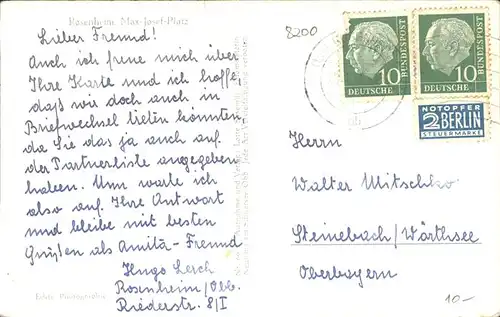 Rosenheim, Max-Josef-Platz
Lieber Freund!
Auch ich freue mich über
Ihre Karte und ich hoffe,
daß wir doch auch in
Briefwechsel treten könnten,
da Sie das ja auch auf
der Partnerliste angegeben
haben. Nun warte ich
also auf Ihre Antwort
und bleibe mit besten
Grüßen als Amita-Freund
Hugo Lesch
Rosenheim/Obb.
Riederstr. 8/I
Echte Photographie
8200
10
DEUTSCHE
BUNDESPOST
10
DEUTSCHE
BUNDESPOST
NOTOPFER
2 BERLIN
STEUERMARKE
Herrn
Walter Mitschko
Steinebach/Wörthsee
Oberbayern
10.-